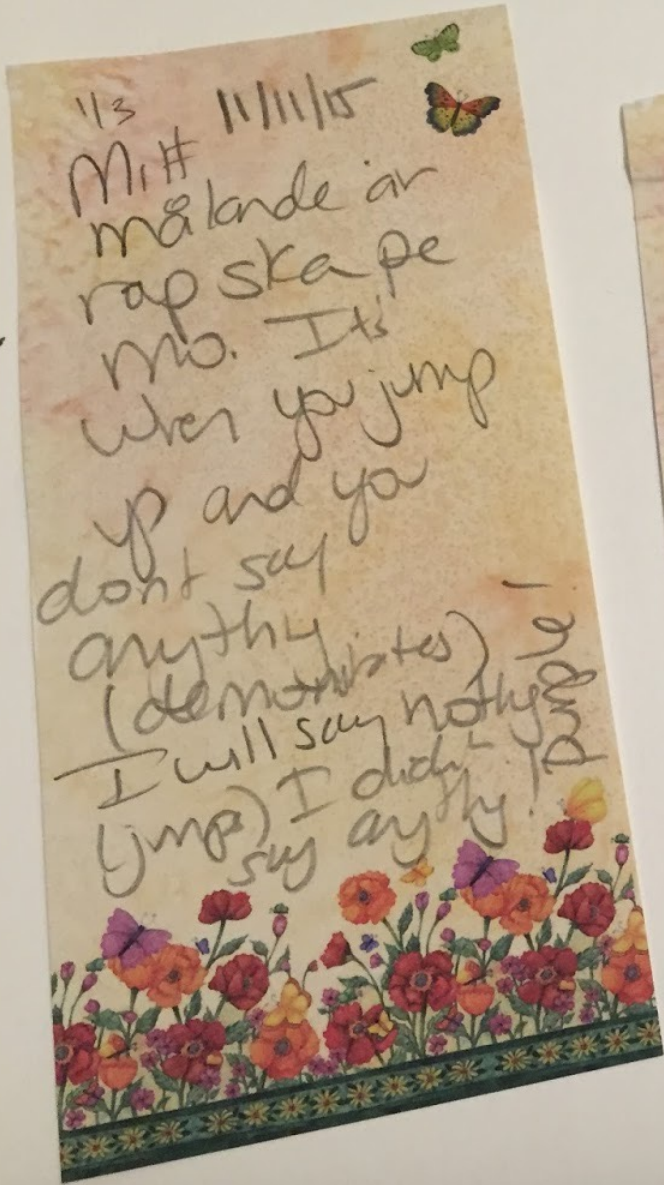 1/3 11/11/15
Mitt
målande är
rap ska pe
mo. It's
when you jump
up and you
dont say
anythg
(demonstrates)
I will say nothg
(jumps) I didn't
say anythg!